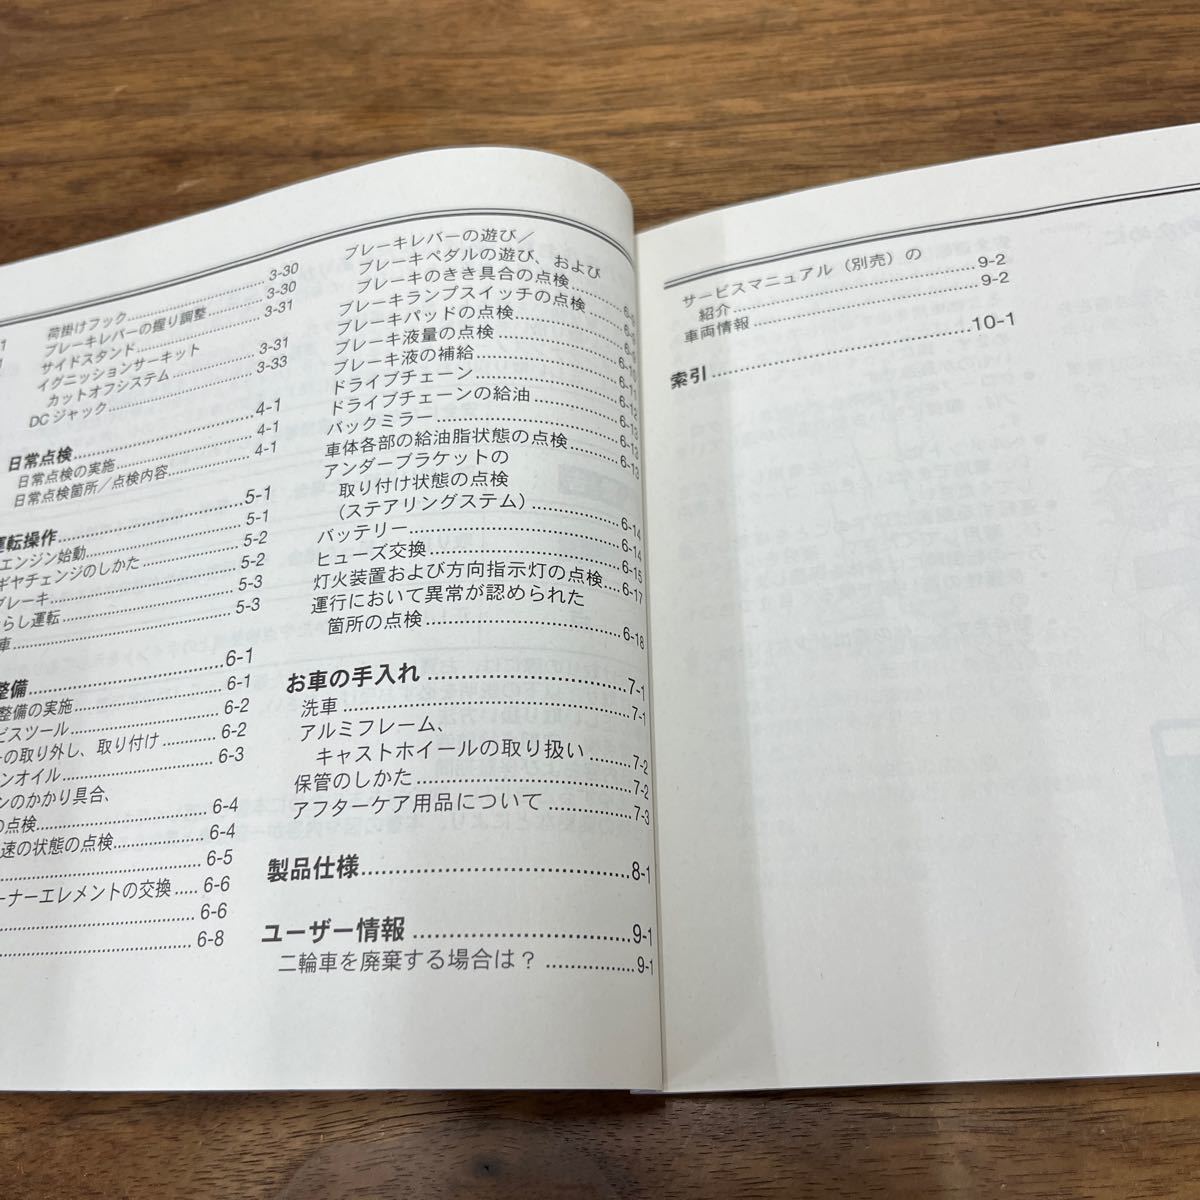 荷掛けフック 3-30
ブレーキレバーの握り調整 3-30
サイドスタンド 3-31
イグニッションサーキット
カットオフシステム 3-31
DC ジャック 3-33
日常点検 4-1
日常点検の実施 4-1
日常点検箇所／点検内容 4-1
運転操作 5-1
エンジン始動 5-1
ギヤチェンジのしかた 5-2
ブレーキ 5-2
らし運転 5-3
車 5-3
整備 6-1
整備の実施 6-1
ビスツール 6-2
ーの取り外し、取り付け 6-2
ンオイル 6-3
ンのかかり具合、
の点検 6-4
速の状態の点検 6-4
6-5
ーナーエレメントの交換 6-6
6-6
6-8
ブレーキレバーの遊び／
ブレーキペダルの遊び、および
ブレーキのきき具合の点検
ブレーキランプスイッチの点検
ブレーキパッドの点検 6-9
ブレーキ液量の点検 6-9
ブレーキ液の補給 6-10
ドライブチェーン 6-11
ドライブチェーンの給油 6-12
バックミラー 6-13
車体各部の給油脂状態の点検 6-13
アンダーブラケットの
取り付け状態の点検
（ステアリングステム） 6-14
バッテリー 6-14
ヒューズ交換 6-15
灯火装置および方向指示灯の点検 6-17
運行において異常が認められた
箇所の点検 6-18
お車の手入れ 7-1
洗車 7-1
アルミフレーム、
キャストホイールの取り扱い 7-2
保管のしかた 7-2
アフターケア用品について 7-3
製品仕様 8-1
ユーザー情報 9-1
二輪車を廃棄する場合は？ 9-1
サービスマニュアル（別売）の
紹介 9-2
車両情報 9-2
索引 10-1